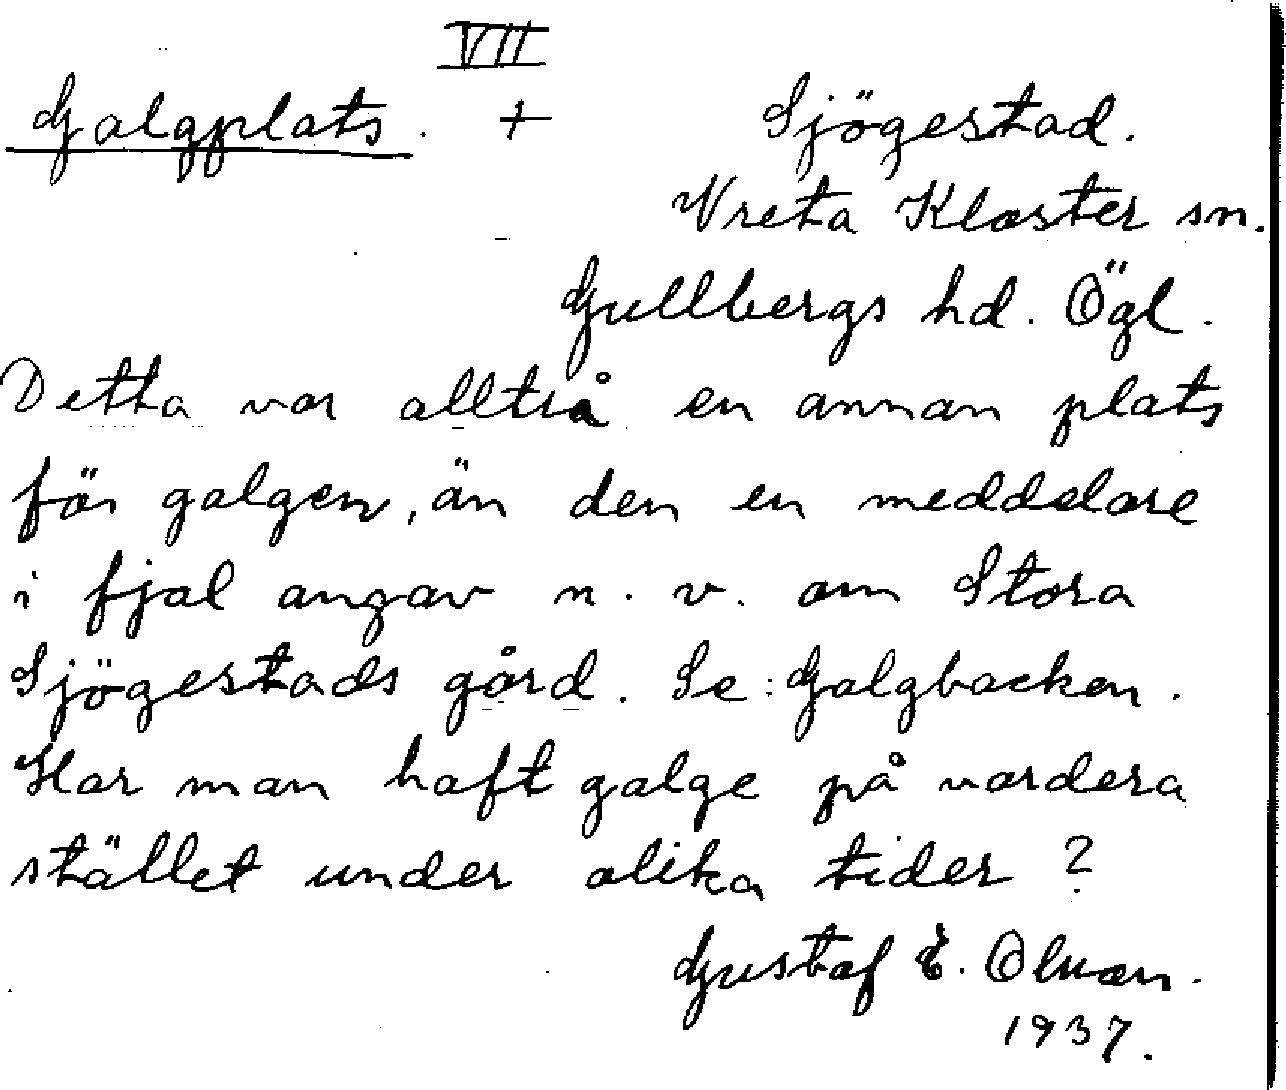 VII
Galgplats. + Sjögestad.
Vreta Kloster sn.
Gullbergs hd. Ögl.
Detta var alltså en annan plats
för galgen, än den en meddelare
i fjal angav n. v. om Stora
Sjögestads gård. Se: Galgbacken.
Har man haft galge på vardera
stället under olika tider?
Gustaf E.
1937.